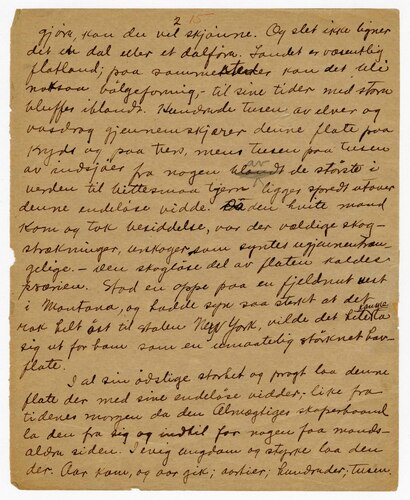 2 15
gjöre, kan du vel skjönne. Og slet ikke ligner
det en dal eller et dalföre. Landet er væsentlig
flatland; paa sammesteder kan det bli
noksaa bölgeformig, - til sine tider med store
bluffes iblandt. Hundrede tusen av elver og
vasdrag gjennemskjærer denne flate paa
kryds og paa tvers, mens tusen paa tusen
av indsjöer fra nogen av de störste i
verden til bittesmaa tjern ligger spredt utover
denne endelöse vidde. Da den hvite mand
kom og tok besiddelse, var der vældige skog-
strækninger, urskoger, som syntes ugjennemtræn-
gelige. - Den skoglöse del av flaten kaldes
prærien. Stod en oppe paa en fjeldnut vest
i Montana, og hadde syn saa sterkt at det
rak helt öst til staten New York, vilde det hele ta
sig ut for ham som en umaatelig störknet hav-
flate.
I al sin ödslige storhet og pragt laa denne
flate der med sine endelöse vidder, like fra
tidenes morgen da den Almægtiges skaperhaand
la den fra sig og indtil for nogen faa mands-
aldre siden. I evig ungdom og styrke laa den
der. Aar kom, og aar gik; aartier; hundreder; tusen